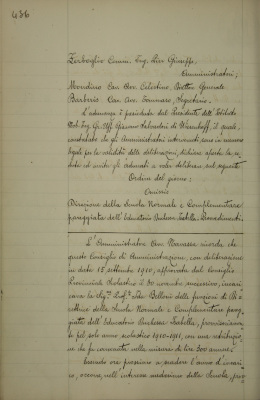 436
Zerboglio Comm. Ing. Pier Giuseppe
Amministratori;
Cav. Avv. Celestino, Rettore Generale
Barberis Cav. Avv. Tommaso Segretario.
L'adunanza è presieduta dal Presidente dell'Istituto
Nob. Ing. Gr. Uff. Giacomo Salvadori di Wiesenhoff, il quale,
constatato che gli Amministratori intervenuti sono in numero
legale per la validità delle deliberazioni, dichiara aperta la se-
duta ed invita gli adunati a voler deliberare sul seguente
Ordine del giorno:
Omissis
Direzione della Scuola Normale e Complementare
pareggiata dell'Educatorio Duchessa Isabella.
L'Amministratore Cav. ricorda che
questo Consiglio di Amministrazione, con deliberazione
in data 15 settembre 1910, approvata dal Consiglio
Provinciale Scolastico il 30 novembre successivo, incari-
cava la Sig.ra Prof.ssa delle funzioni di Di-
rettrice della Scuola Normale e Complementare pareg-
giata dell'Educatorio Duchessa Isabella, provvisoriamen-
te pel solo anno scolastico 1910-1911, con una retribuzio-
ne da nella misura di lire 500 annue.
Essendo ora prossimo a scadere l'anno d'incari-
co, occorre, nell'interesse medesimo della Scuola, prov-